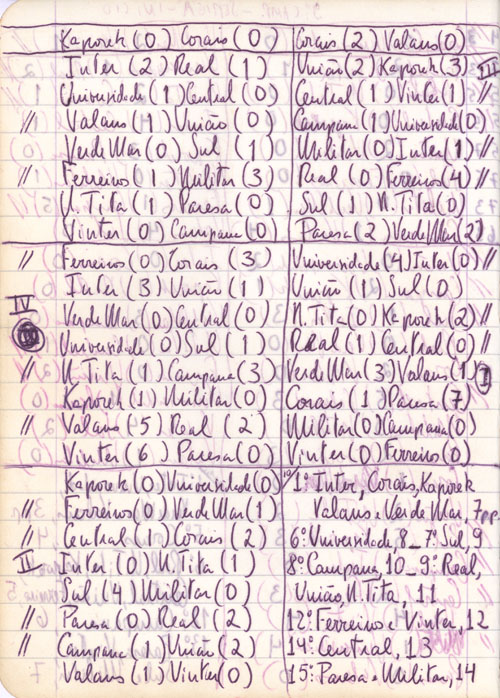 Kaporek (0) Corais (0)
Inter (2) Real (1)
Universidade (1) Central (0)
// Valaus (1) União (0)
Verde Mar (0) Sul (1)
// Ferreiros (1) Militar (3)
// N. Tita (1) Paresa (0)
Vinter (0) Campana (0)
Corais (2) Valaus (0)
União (2) Kaporek (3) III
Central (1) Vinter (1) //
Campana (1) Universidade (0)
Militar (0) Inter (1) //
Real (0) Ferreiros (4) //
Sul (1) N. Tita (0)
Paresa (2) Verde Mar (2)
// Ferreiros (0) Corais (3)
Inter (3) União (1)
IV Verde Mar (0) Central (0)
Universidade (0) Sul (1)
// N. Tita (1) Campana (3)
Kaporek (1) Militar (0)
// Valaus (5) Real (2)
// Vinter (6) Paresa (0)
Universidade (4) Inter (0) //
União (1) Sul (0)
N. Tita (0) Kaporek (2) //
Real (1) Central (0) //
Verde Mar (3) Valaus (1) I
Corais (1) Paresa (7)
Militar (0) Campana (0)
Vinter (0) Ferreiro (0)
Kaporek (0) Universidade (0)
// Ferreiros (0) Verde Mar (1)
// Central (1) Corais (2)
II Inter (0) N. Tita (1)
Sul (4) Militar (0)
// Paresa (0) Real (2)
// Campana (1) União (2)
Valaus (1) Vinter (0)
1º: Inter, Corais, Kaporek
Valaus e Verde Mar, 7pp.
6º: Universidade, 8_7º: Sul, 9
8º: Campana, 10_9º: Real,
União, N. Tita, 11
12º: Ferreiros e Vinter, 12
14º: Central, 13
15º: Paresa e Militar, 14